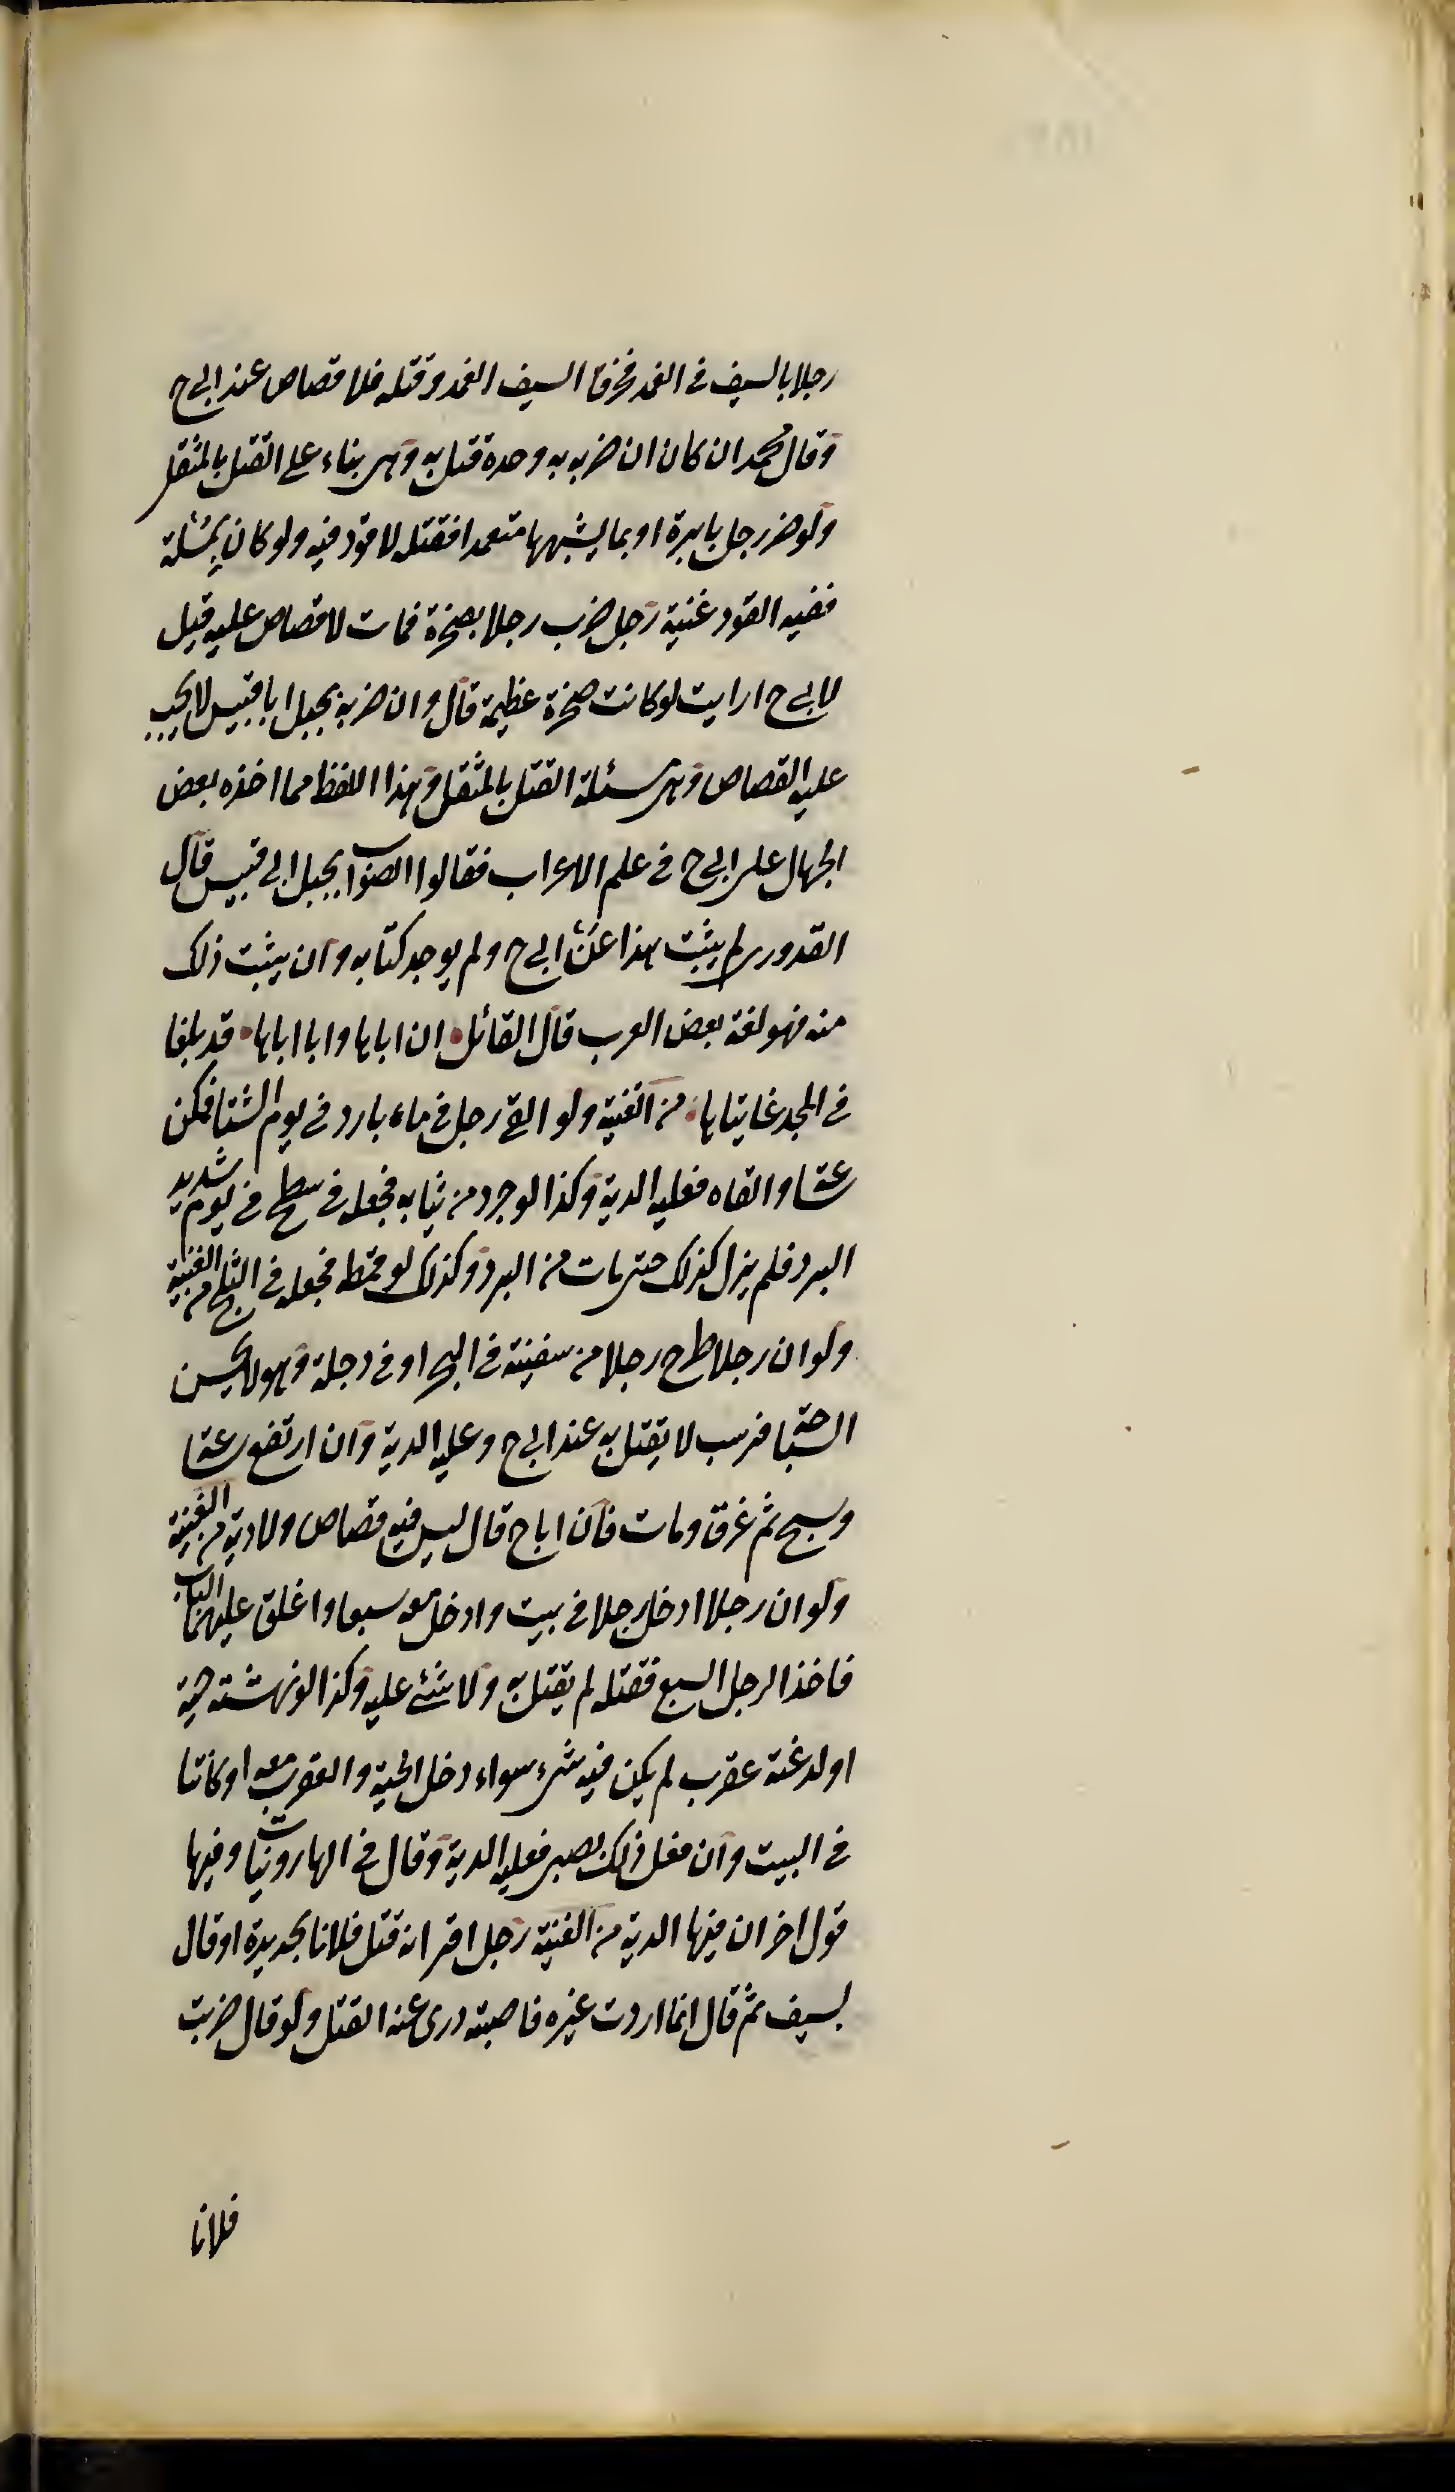 رجلا بالسيف في الغمد فخرق السيف الغمد وقتله فلا قصاص عند ابي ح
وقال محمد ان كان ان ضربه به وحده قتل به وهي بناء على القتل بالمثقل
ولو ضرب رجل بابرة او بما يشبهها متعمدا فقتله لا قود فيه ولو كان بمسلة
ففيه القود غنية رجل ضرب رجلا بصخرة فمات لا قصاص عليه قيل
لابي ح ارايت لو كانت صخرة عظيمة قال وان ضربه بجبل ابا قبيس لا يجب
عليه القصاص وهي مسئلة القتل بالمثقل وهذا اللفظ مما اخذه بعض
الجهال على ابي ح في علم الاعراب فقالوا الصواب بجبل ابي قبيس قال
القدوري لم يثبت هذا عن ابي ح ولم يوجد كتابه وان يثبت ذلك
منه فهو لغة بعض العرب قال القائل ان اباها وابا اباها قد بلغا
في المجد غايتاها من الغنية ولو القى رجل في ماء بارد في يوم الشتا فمكث
ساعة القاه فعليه الدية وكذا لو جرد من ثيابه فجعله في سطح في يوم شديد
البرد فلم يزل كذلك حتى مات من البرد وكذلك لو قمطه فجعله في الثلج من الغنية
ولو ان رجلا طرح رجلا من سفينة في البحر او في دجلة وهو لا يحسن
السباحة فرسب لا يقتل به عند ابي ح وعليه الدية وان ارتفع ساعة
وسبح ثم غرق ومات فان ابا ح قال ليس فيه قصاص ولا دية من الغنية
ولو ان رجلا ادخل رجلا في بيت وادخل معه سبعا واغلق عليهما الباب
فاخذ الرجل السبع فقتله لم يقتل به ولا شئ عليه وكذا لو نهشته حية
او لدغته عقرب لم يكن فيه شيء سواء دخل الحية والعقرب معه او كانتا
في البيت وان فعل ذلك بصبي فعليه الدية وقال في الهارونيات وفيها
قول اخر ان فيها الدية من الغنية رجل اقر انه قتل فلانا بحديدة او قال
بسيف ثم قال انما اردت غيره فاصبته درئ عنه القتل ولو قال ضربت
فلانا